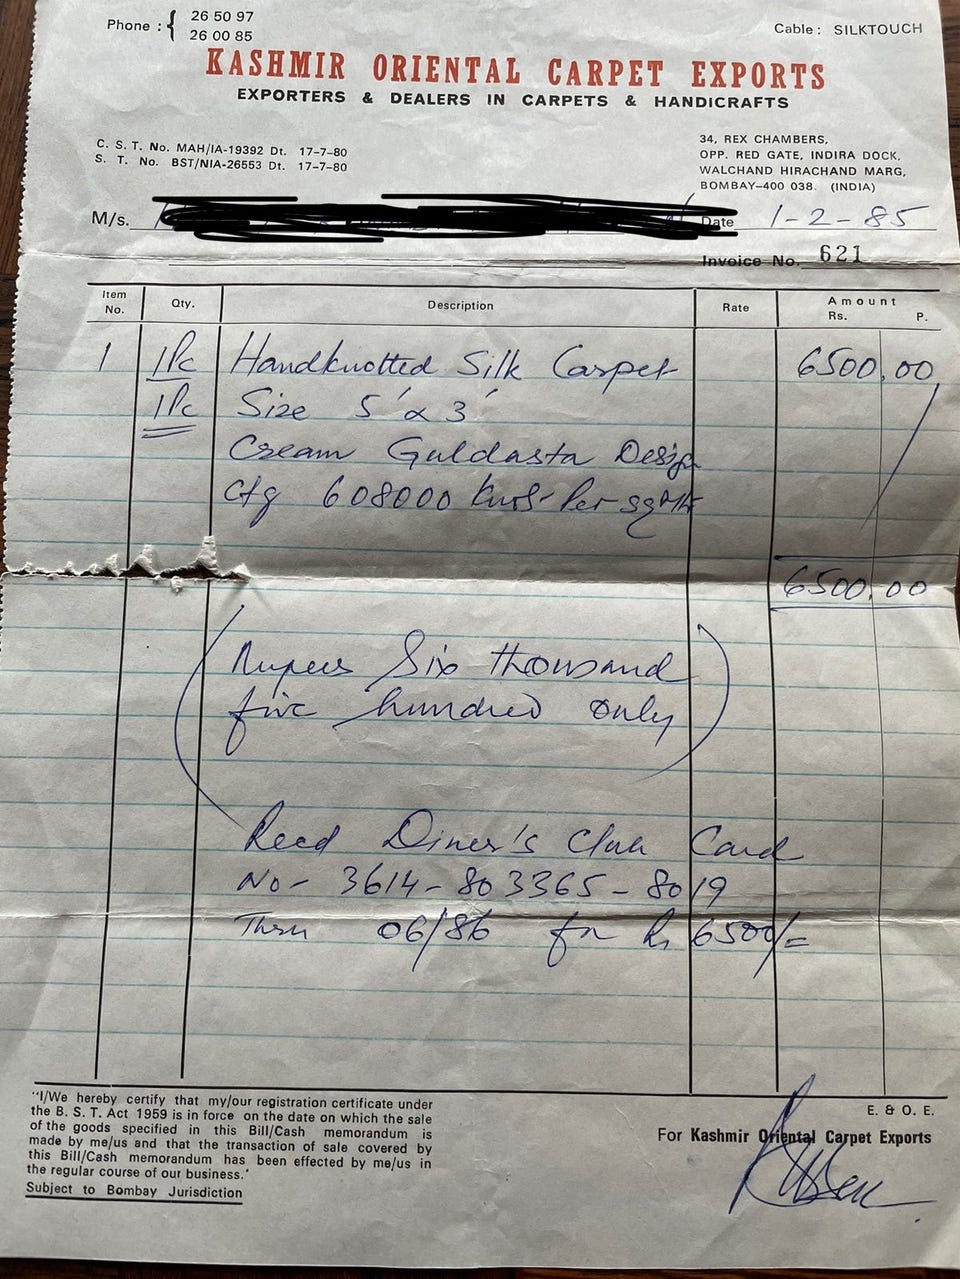 Phone : { 26 50 97
26 00 85
Cable : SILKTOUCH
KASHMIR ORIENTAL CARPET EXPORTS
EXPORTERS & DEALERS IN CARPETS & HANDICRAFTS
C. S. T. No. MAH/IA-19392 Dt. 17-7-80
S. T. No. BST/NIA-26553 Dt. 17-7-80
34, REX CHAMBERS,
OPP. RED GATE, INDIRA DOCK,
WALCHAND HIRACHAND MARG,
BOMBAY-400 038. (INDIA)
M/s. Date 1-2-85
Invoice No. 621
Item No. Qty. Description Rate Amount Rs. P.
1 1Pc Handknotted Silk Carpet 6500.00
1Pc Size 5' x 3'
Cream Guldasta Design
Ctg 608000 knots Per sq Mtr
6500.00
(Rupees Six thousand
five hundred only)
Recd Diner's Club Card
No- 3614-803365-8019
Thru 06/86 for Rs 6500/=
"I/We hereby certify that my/our registration certificate under
the B. S. T. Act 1959 is in force on the date on which the sale
of the goods specified in this Bill/Cash memorandum is
made by me/us and that the transaction of sale covered by
this Bill/Cash memorandum has been effected by me/us in
the regular course of our business.'
Subject to Bombay Jurisdiction
E. & O. E.
For Kashmir Oriental Carpet Exports